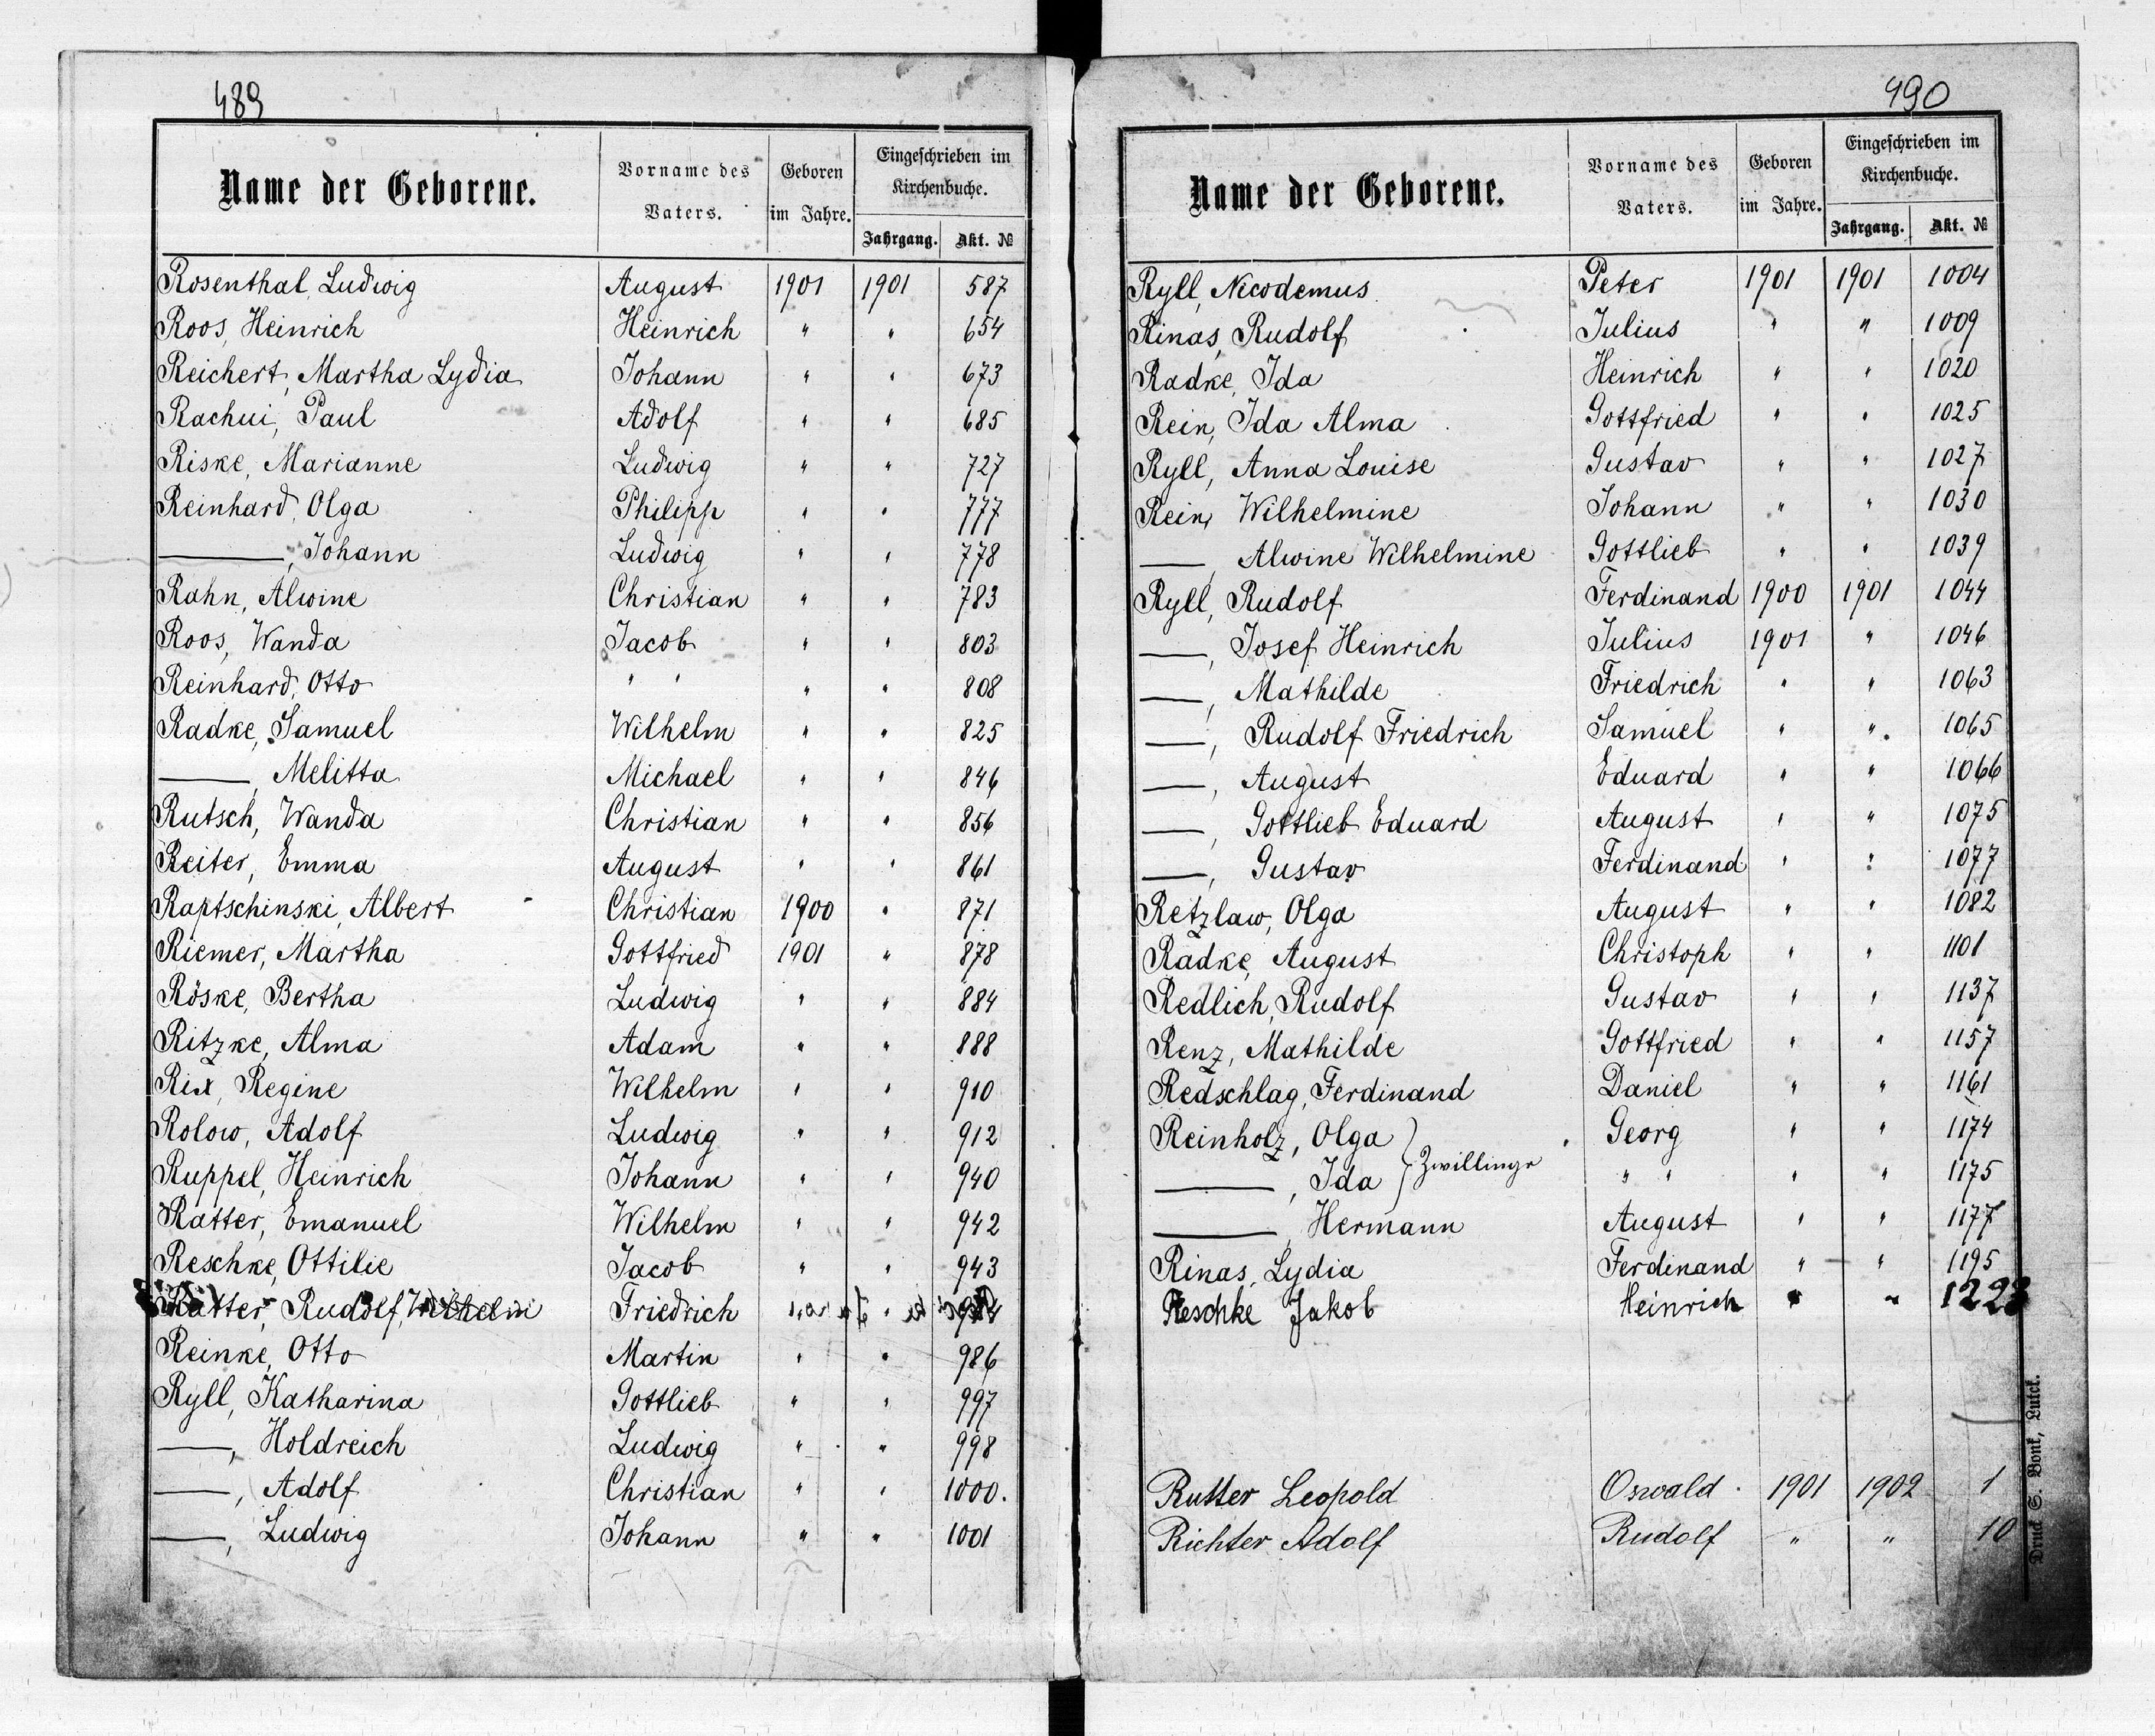 489
Name der Geborene. Vorname des Vaters. Geboren im Jahre. Eingeschrieben im Kirchenbuche. Jahrgang. Akt. №
Rosenthal, Ludwig August 1901 1901 587
Roos, Heinrich Heinrich " " 654
Reichert, Martha Lydia Johann " " 673
Rachui, Paul Adolf " " 685
Riske, Marianne Ludwig " " 727
Reinhard, Olga Philipp " " 777
——, Johann Ludwig " " 778
Rahn, Alwine Christian " " 783
Roos, Wanda Jacob " " 803
Reinhard, Otto " " " " 808
Radke, Samuel Wilhelm " " 825
——, Melitta Michael " " 846
Rutsch, Wanda Christian " " 856
Reiter, Emma August " " 861
Raptschinski, Albert Christian 1900 " 871
Riemer, Martha Gottfried 1901 " 878
Röske, Bertha Ludwig " " 884
Ritzke, Alma Adam " " 888
Rix, Regine Wilhelm " " 910
Rolow, Adolf Ludwig " " 912
Ruppel, Heinrich Johann " " 940
Ratter, Emanuel Wilhelm " " 942
Reschke, Ottilie Jacob " " 943
Ratter, Rudolf, Wilhelm Friedrich
Reinke, Otto Martin " " 986
Ryll, Katharina Gottlieb " " 997
——, Holdreich Ludwig " " 998
——, Adolf Christian " " 1000.
——, Ludwig Johann " " 1001
490
Name der Geborene. Vorname des Vaters. Geboren im Jahre. Eingeschrieben im Kirchenbuche. Jahrgang. Akt. №
Ryll, Nicodemus Peter 1901 1901 1004
Rinas, Rudolf Julius " " 1009
Radke, Ida Heinrich " " 1020
Rein, Ida Alma Gottfried " " 1025
Ryll, Anna Louise Gustav " " 1027
Rein, Wilhelmine Johann " " 1030
——, Alwine Wilhelmine Gottlieb " " 1039
Ryll, Rudolf Ferdinand 1900 1901 1044
——, Josef Heinrich Julius 1901 " 1046
——, Mathilde Friedrich " " 1063
——, Rudolf Friedrich Samuel " " 1065
——, August Eduard " " 1066
——, Gottlieb Eduard August " " 1075
——, Gustav Ferdinand " " 1077
Retzlaw, Olga August " " 1082
Radke, August Christoph " " 1101
Redlich, Rudolf Gustav " " 1137
Renz, Mathilde Gottfried " " 1157
Redschlag, Ferdinand Daniel " " 1161
Reinholz, Olga Georg " " 1174
——, Ida } Zwillinge " " " " 1175
——, Hermann August " " 1177
Rinas, Lydia Ferdinand " " 1195
Reschke Jakob Heinrich " " 1223
Rutter Leopold Oswald 1901 1902 1
Richter Adolf Rudolf " " 10
Druck S. Bonk, Lutzk.